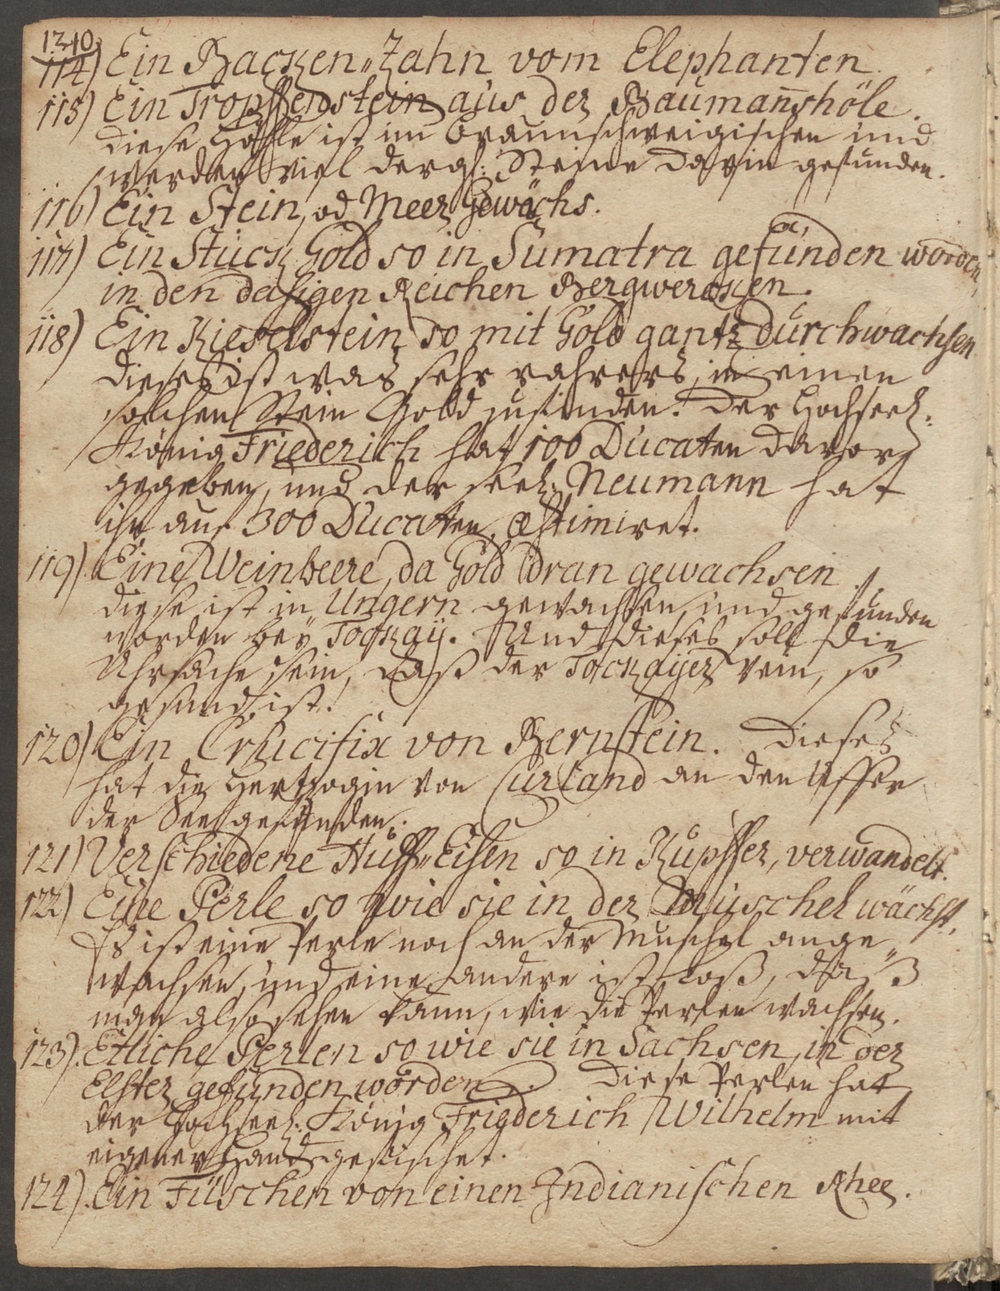 1310.
114) Ein Backen-Zahn vom Elephanten.
115) Ein Tropffenstein aus der Baumanshöle.
diese Höhle ist im Braunschweigischen und
werden viel dergl: Steine darin gefunden.
116) Ein Stein, od Meer Gewächs.
117) Ein Stück Gold so in Sumatra gefunden worden,
in den dasigen Reichen Bergwercken.
118) Ein Kieselstein so mit Gold gantz durchwachsen
dieses ist was sehr rahres, in einen
solchen Stein Gold zu finden. Der Hochseel:
König Friederich hat 100 Ducaten davor
gegeben, und der seel: Neumann hat
ihn auf 300 Ducaten æstimiret.
119) Eine Weinbeere, da Gold dran gewachsen
diese ist in Ungern gewachsen, und gefunden
worden bey Tockay. Und dieses soll die
Uhrsache sein, daß der Tockayer Wein, so
gesund ist.
120) Ein Crucifix von Bernstein. Dieses
hat die Hertzogin von Curland an den Uffer
der See gefunden.
121) Verschiedene Huff-Eisen so in Kupffer, verwandelt.
122) Eine Perle so wie sie in der Muschel wächst,
Es ist eine Perle noch an der Muschel ange-
wachsen, und eine andere ist loß, daß
man also sehen kann, wie die Perlen wachsen.
123) Etliche Perlen so wie sie in Sachsen, in der
Elster gefunden worden. Diese Perlen hat
der Hochseel: König Friederich Wilhelm mit
eigener Hand gefischet.
124) Ein Füschen von einen Indianischen Rhee.